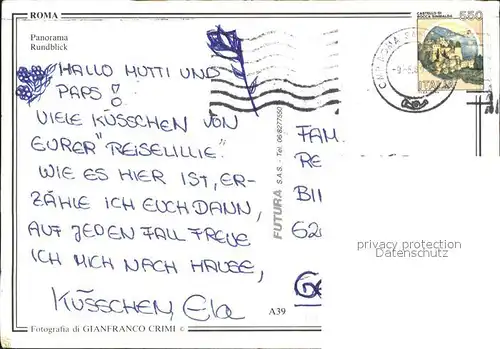 ROMA
Panorama
Rundblick
HALLO MUTTI UND
PAPS!
VIELE KÜSSCHEN VON
EURER "REISELILLIE".
WIE ES HIER IST, ER-
ZÄHLE ICH EUCH DANN,
AUF JEDEN FALL FREUE
ICH MICH NACH HAUSE,
KÜSSCHEN, Ela
Fotografia di GIANFRANCO CRIMI ©
A39
FUTURA S.A.S. - Tel. 06-8277550
CASTELLO DI
ROCCA SINIBALDA
550
ITALIA
ROMA
FAM
RE
BII
62
privacy protection
Datenschutz